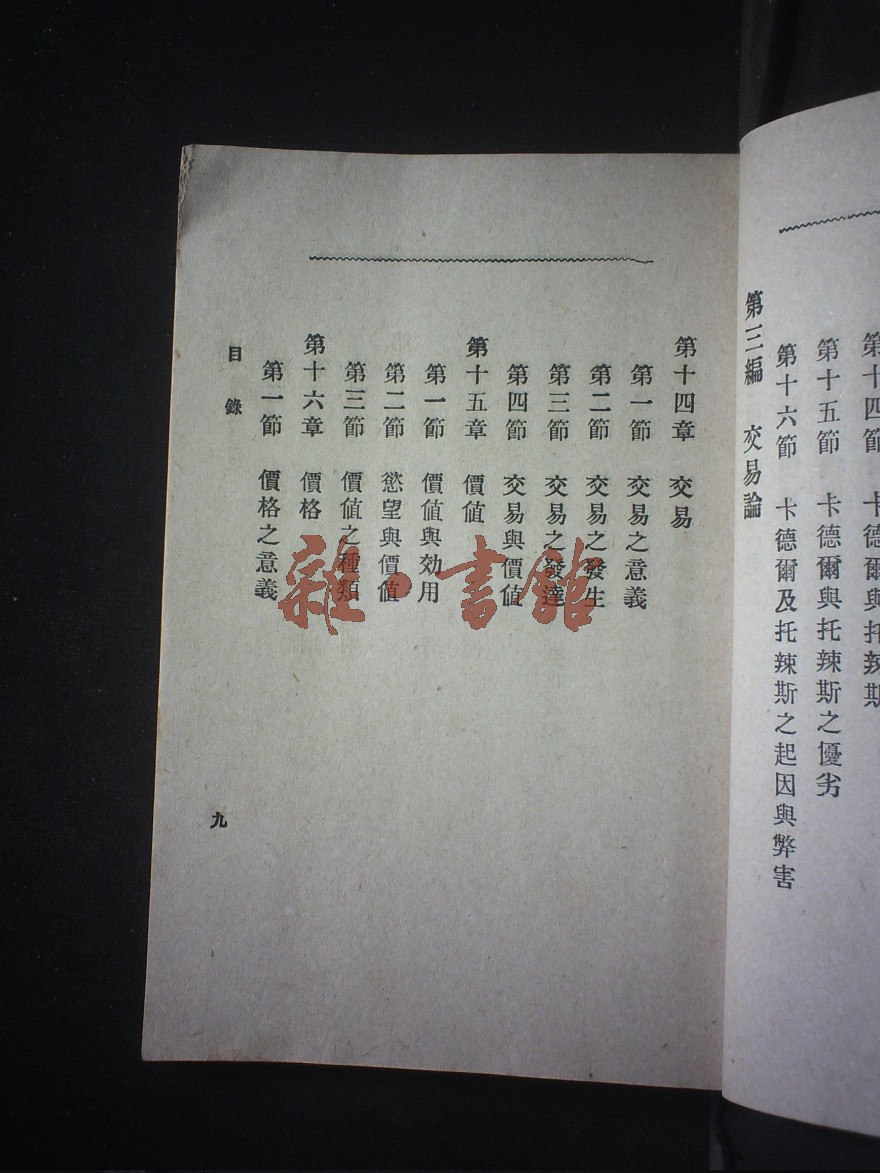 第十四節 卡德爾與托辣斯
第十五節 卡德爾與托辣斯之優劣
第十六節 卡德爾及托辣斯之起因與弊害
第三編 交易論
第十四章 交易
第一節 交易之意義
第二節 交易之發生
第三節 交易之發達
第四節 交易與價值
第十五章 價值
第一節 價值與効用
第二節 慾望與價值
第三節 價值之種類
第十六章 價格
第一節 價格之意義
目錄
九
雜·書館